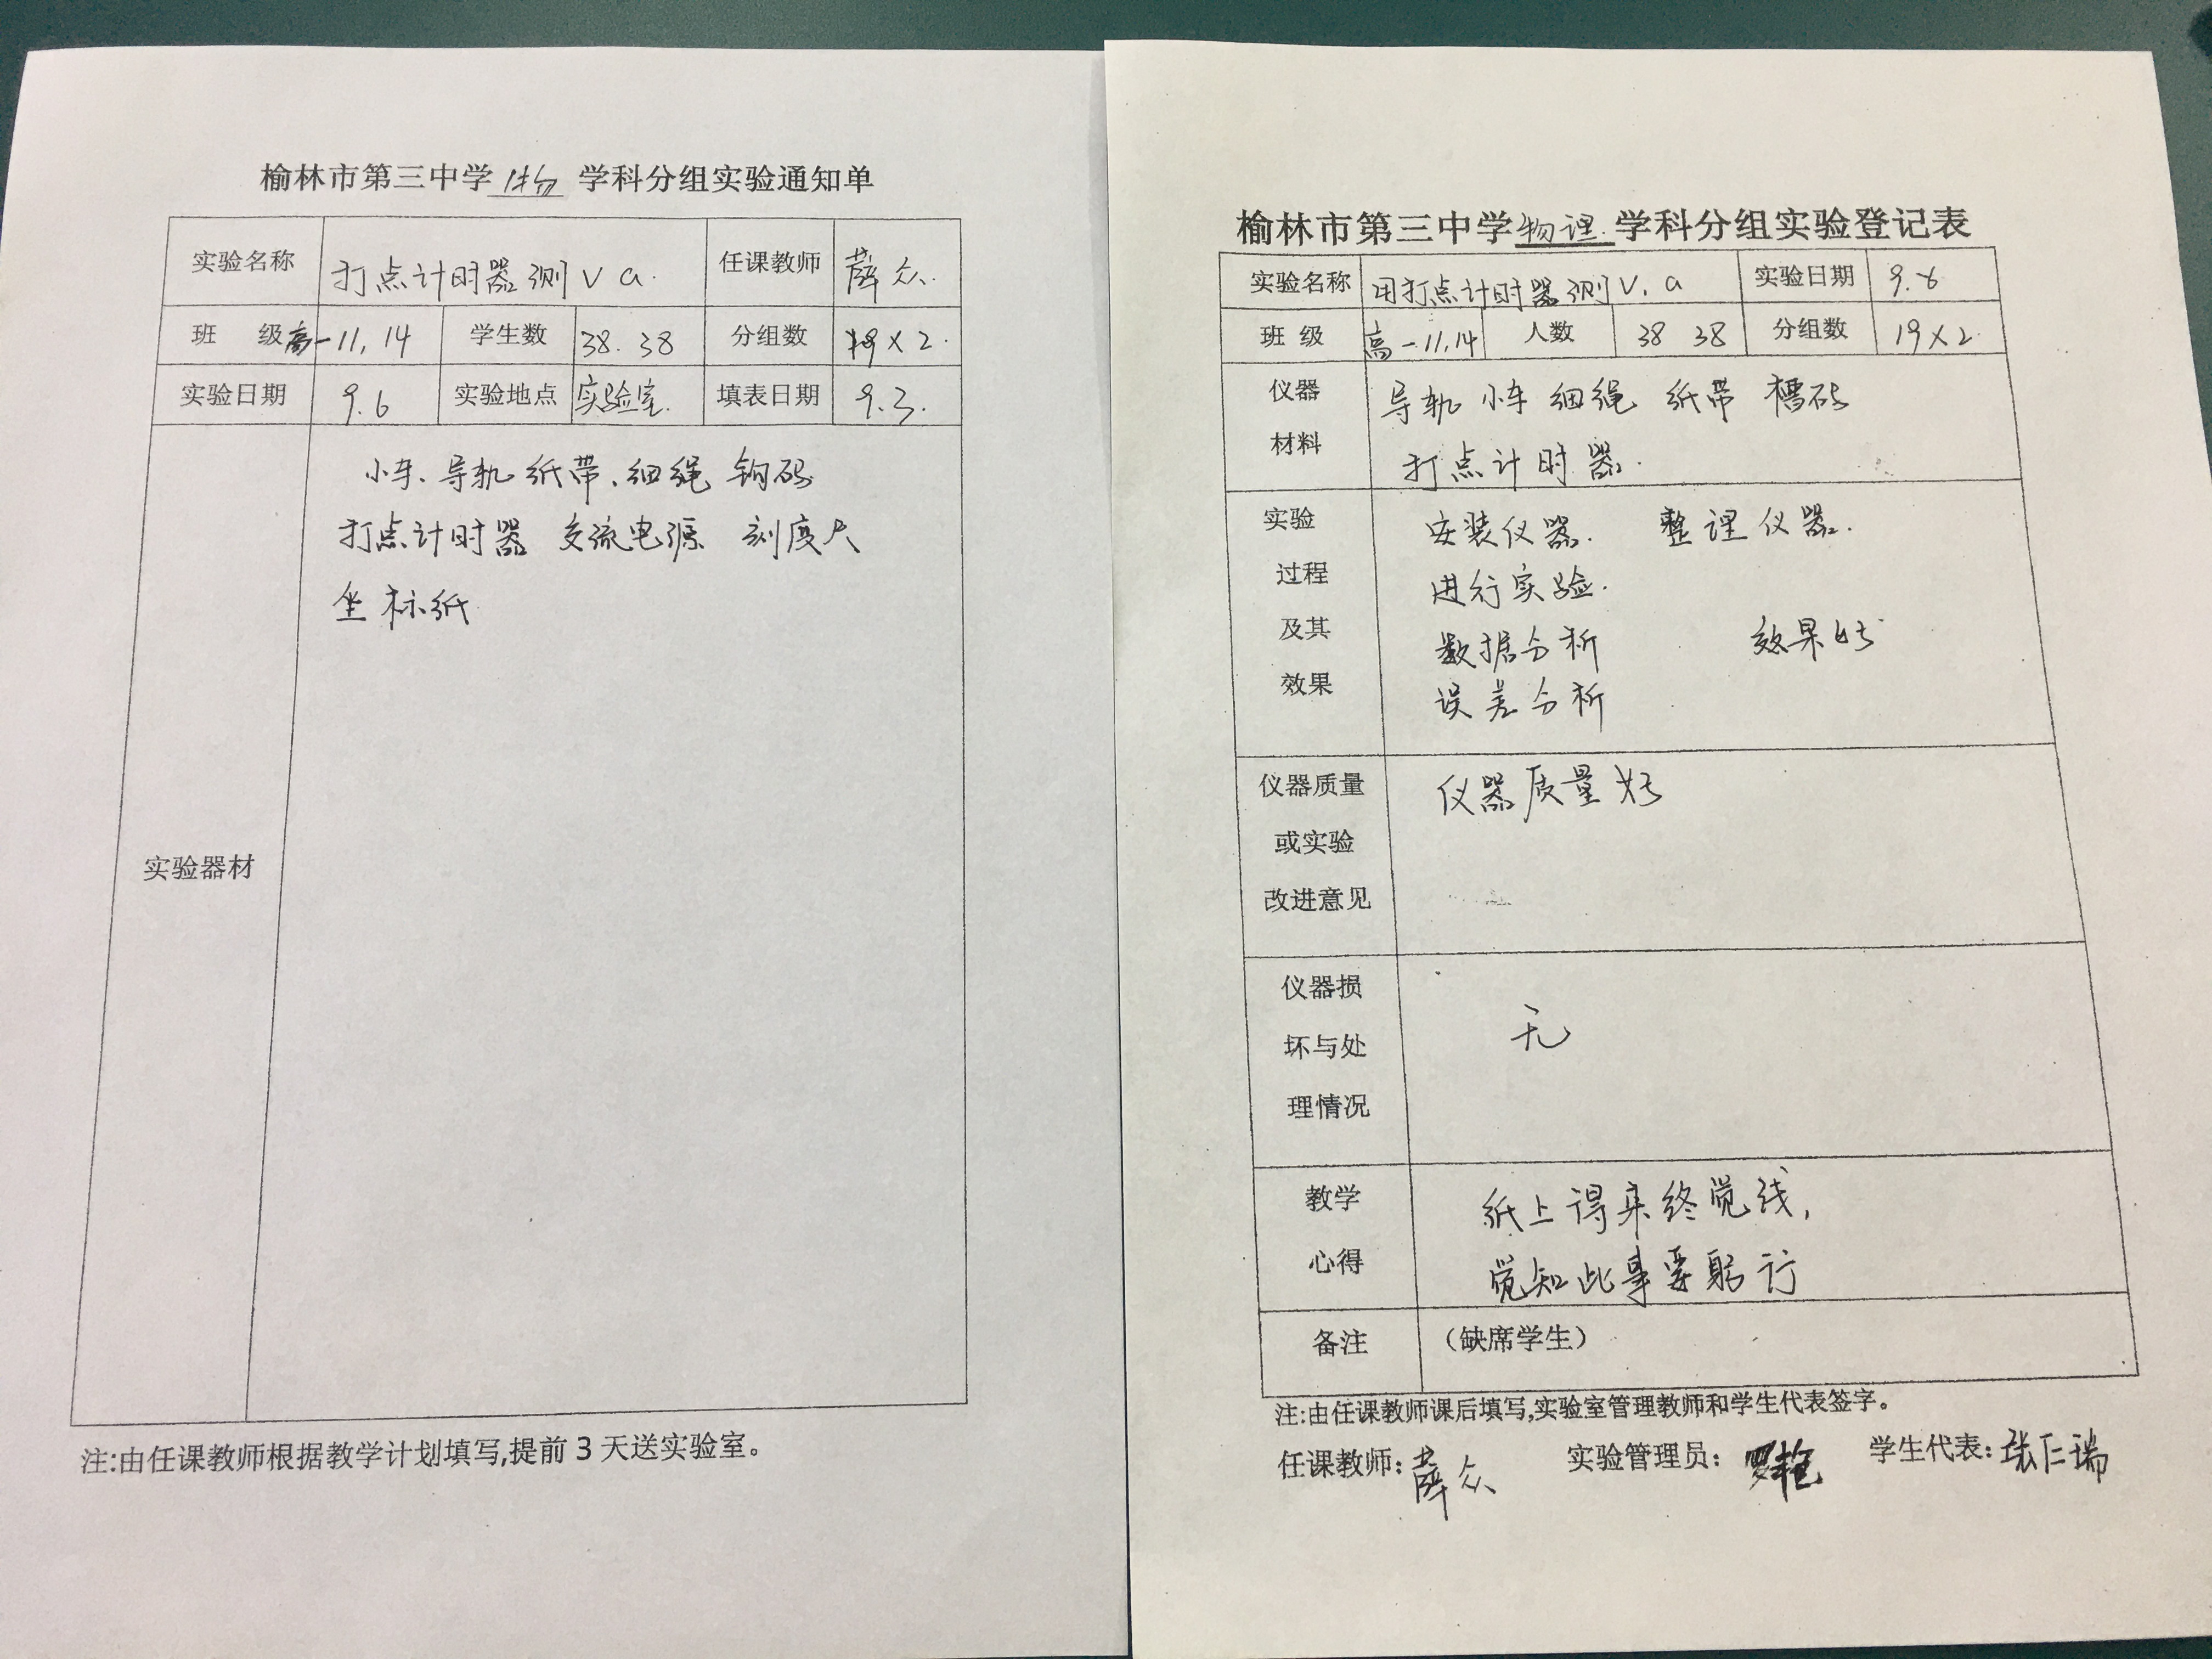 榆林市第三中学 物 学科分组实验通知单
实验名称 打点计时器测 V a. 任课教师 薛众.
班 级 高一11, 14 学生数 38. 38 分组数 19×2.
实验日期 9.6 实验地点 实验室. 填表日期 9.3.
实验器材
小车、导轨 纸带、细绳 钩码
打点计时器 交流电源 刻度尺
坐标纸
注:由任课教师根据教学计划填写,提前3天送实验室。
榆林市第三中学 物理 学科分组实验登记表
实验名称 用打点计时器测 V, a 实验日期 9.6
班 级 高一11,14 人数 38 38 分组数 19×2
仪器材料
导轨 小车 细绳 纸带 槽码
打点计时器.
实验过程及其效果
安装仪器. 整理仪器.
进行实验.
数据分析 效果好
误差分析
仪器质量或实验改进意见
仪器质量好
仪器损坏与处理情况
无
教学心得
纸上得来终觉浅,
觉知此事要躬行
备注 （缺席学生）
注:由任课教师课后填写,实验室管理教师和学生代表签字。
任课教师: 薛众 实验管理员: 学生代表: 张仁瑞